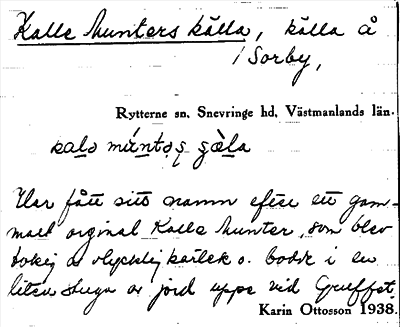 Kalle Munters källa, källa å
/ Sorby,
Rytterne sn. Snevringe hd. Västmanlands län.
kalə múntəʂ ɕæ̀la
Har fått sitt namn efter ett gam-
malt orginal Kalle Munter, som blev
tokig av olycklig kärlek o. bodde i en
liten stuga av jord uppe vid Gruffst.
Karin Ottosson 1938.